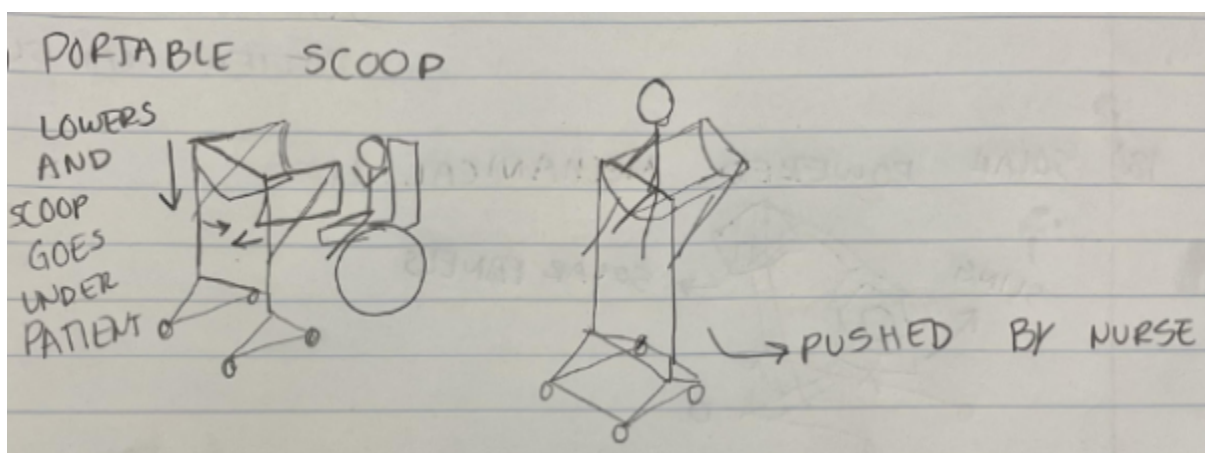 PORTABLE SCOOP
LOWERS
AND
SCOOP
GOES
UNDER
PATIENT
PUSHED BY NURSE